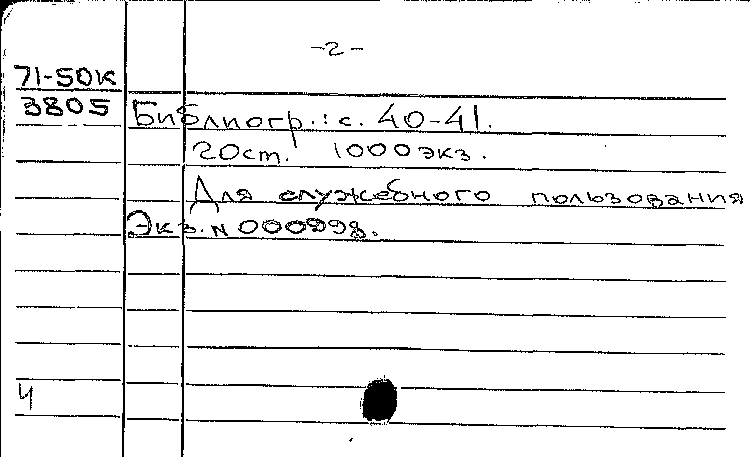 -2-
71-50к
3805
Библиогр.: с. 40-41.
20 ст. 1000 экз.
Для служебного пользования
Экз. N 000998.
Ч